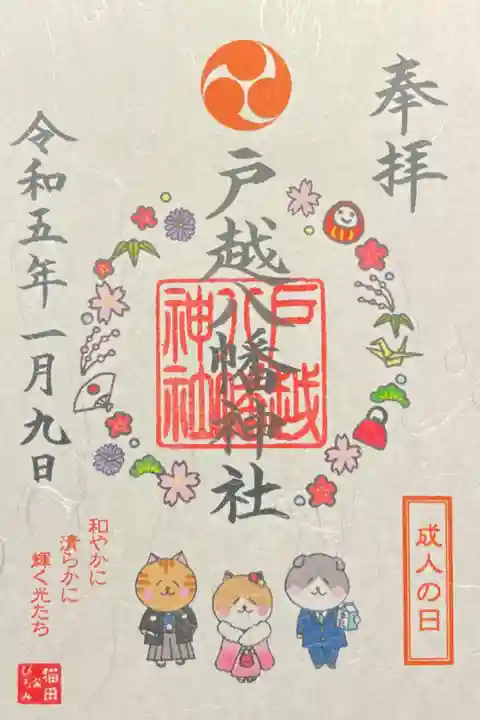 奉拝
戸越八幡神社
戸越
八幡
神社
令和五年一月九日
成人の日
和やかに
清らかに
輝く光たち
猫田